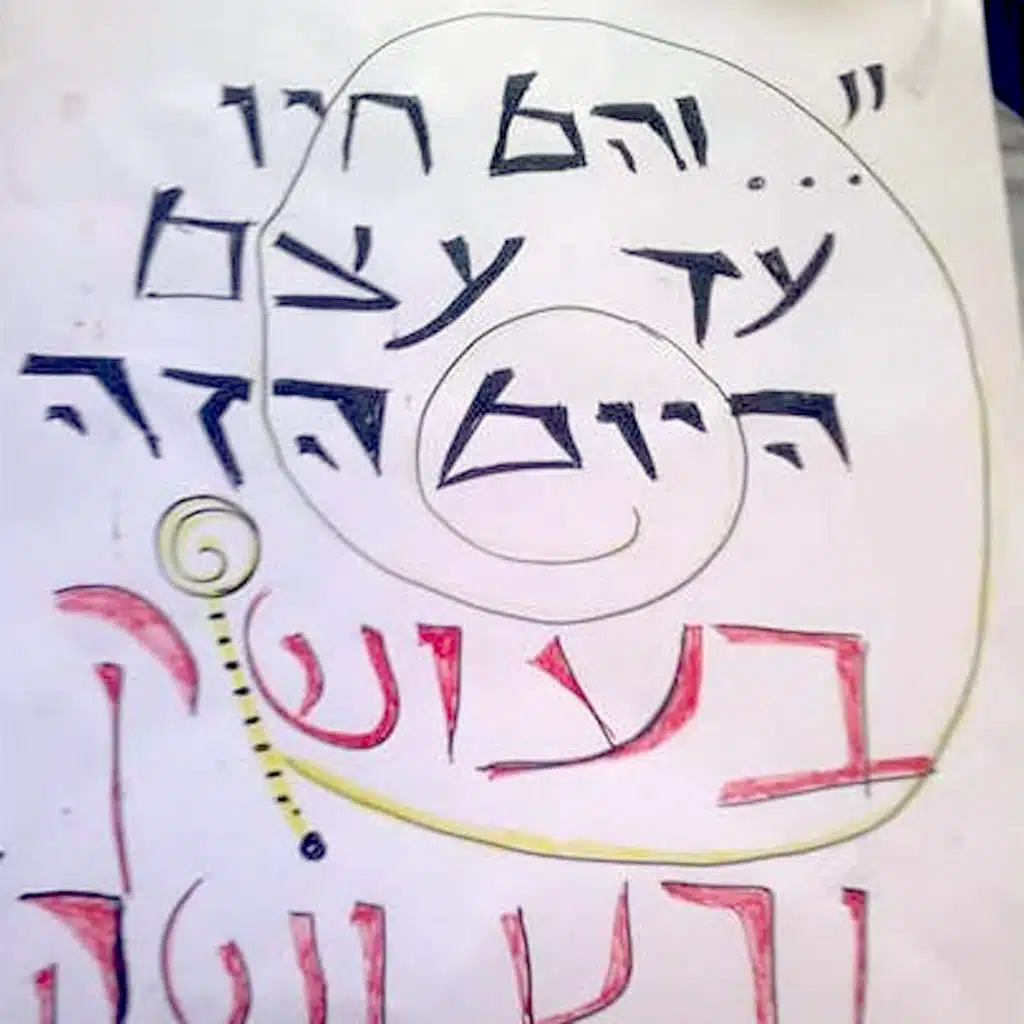 "...והם חיו
עד עצם
היום הזה
בעושק